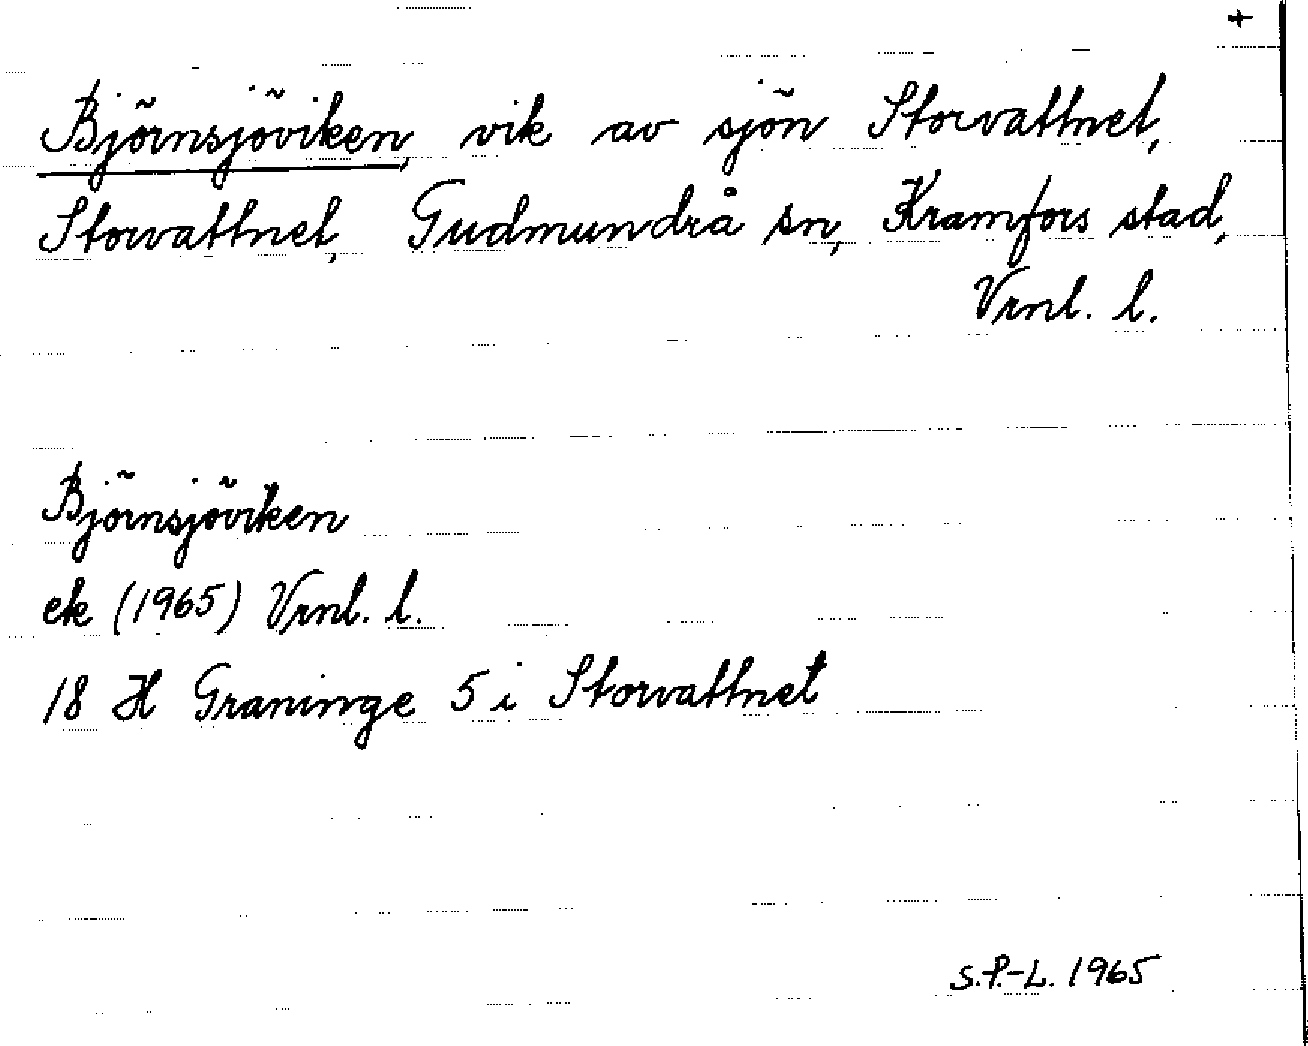 +
Björnsjöviken, vik av sjön Storvattnet,
Storvattnet, Gudmundrå sn, Kramfors stad,
Vrnl. l.
Björnsjöviken
ek (1965) Vrnl. l.
18 H Graninge 5 i Storvattnet
S.P.-L. 1965